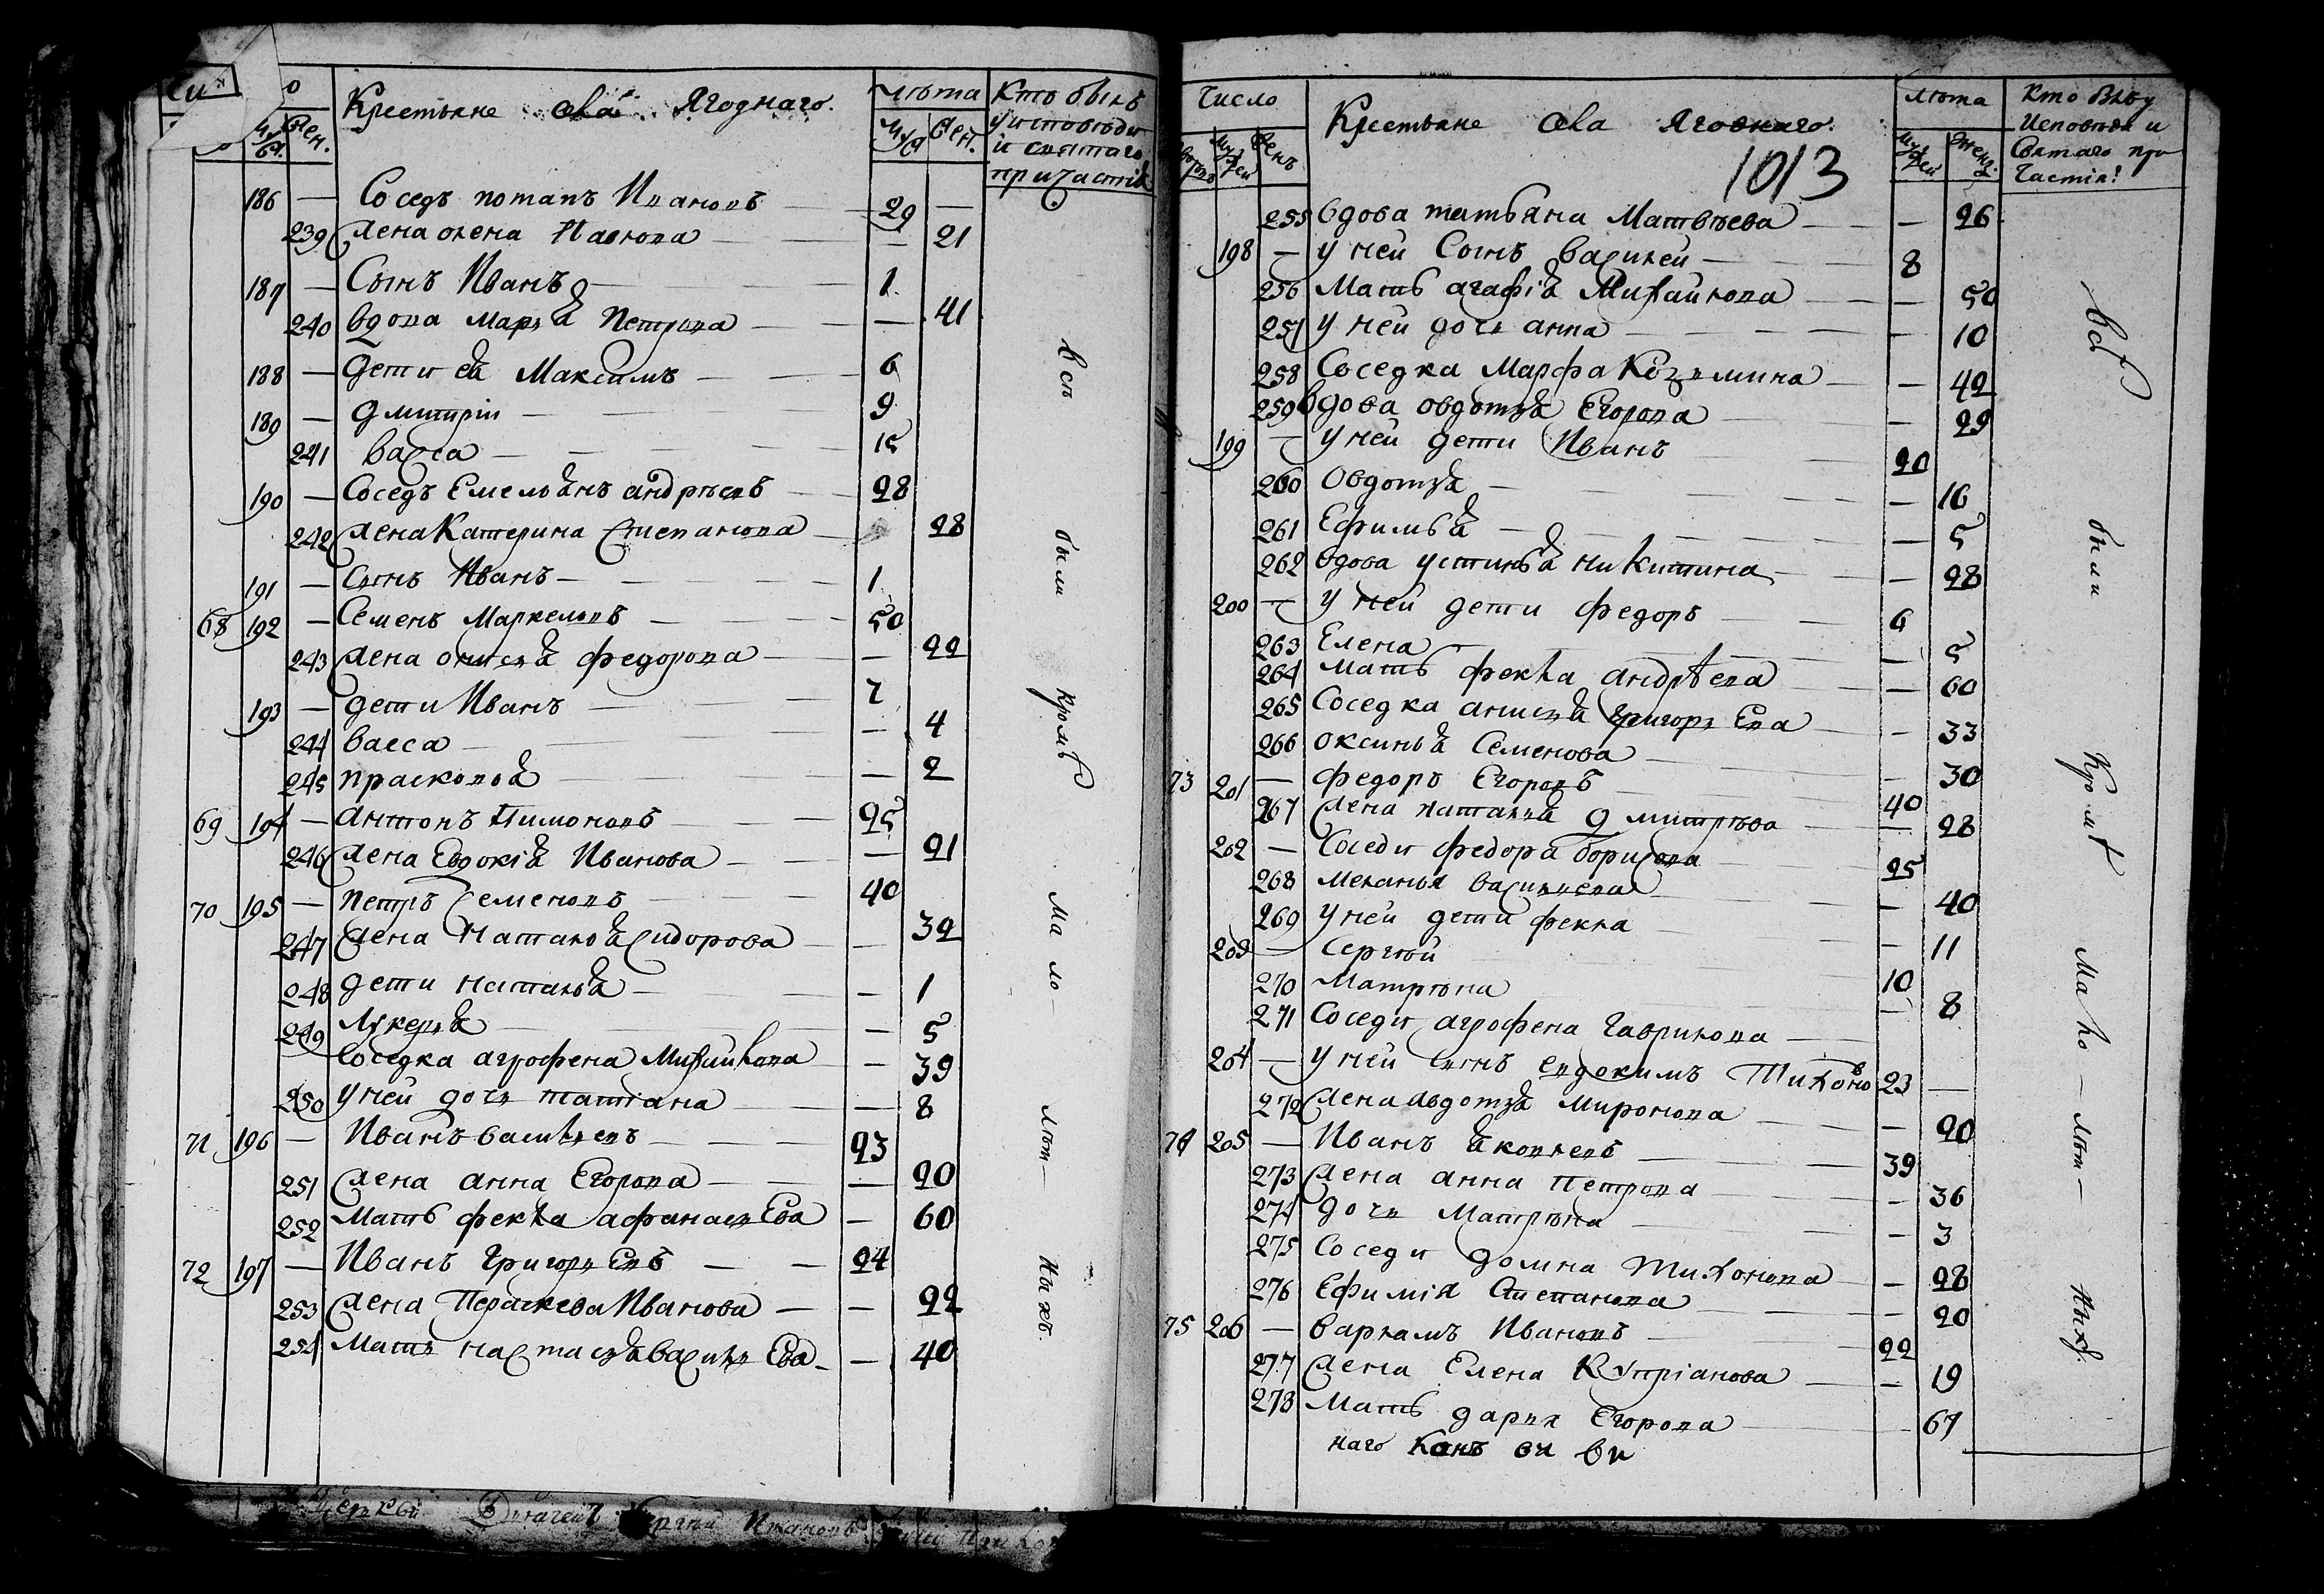 Крестьяне села Ягоднаго.
лѣта
муж
жен.
Кто былъ
у исповѣди
и святаго
причастія
186 — Соседъ потапъ Ивановъ — 29 —
239 жена олена Павлова — — 21
187 — Сынъ Иванъ — 1
240 вдова Марья Петрова — — 41
188 — дети ея Максимъ — 6
189 — дмитрій — 9
241 васса — 15
190 — Соседъ Емельянъ андрѣевъ — 28
242 жена Катерина Степанова — 28
191 — Сынъ Иванъ — 1
68 192 — Семенъ Маркеловъ — 50
243 жена онисья федорова — — 22
193 — дети Иванъ — 7
244 васса — — 4
245 прасковья — — 2
69 194 — антонъ Пимоновъ — 25
246 жена Евдокія Иванова — — 21
70 195 — петръ Семеновъ — 40
247 жена Наталья Сидорова — — 32
248 дети наталья — — 1
249 Лукерья — — 5
Соседка агрофена Михайлова — — 39
250 у ней дочь татіана — — 8
71 196 — Иванъ васильевъ — 23
251 жена анна Егорова — — 20
252 Мать фекла афанасьЕва — 60
72 197 — Иванъ ГригорьЕвъ — 24
253 жена Пераскева Иванова — — 22
254 Мать настасья васильЕва — — 40
всѣ были кромѣ мало — лѣт — ныхъ.
Число
муж
жен
Крестьяне села Ягоднаго.
1013
лѣта
Кто былъ у
Исповѣди и
Святаго при
Частія?
255 вдова татьяна Матвѣева — — 26
198 — у ней Сынъ василей — 8
256 Мать агафія Михайлова — — 50
257 у ней дочь анна — — 10
258 Соседка Марфа Козьмина — — 42
259 вдова овдотья Егорова — — 29
199 — у ней дети Иванъ — 20
260 Овдотья — — 16
261 Ефимья — — 5
262 вдова устинья никитина — — 28
200 — у ней дети федоръ — 6
263 Елена — — 5
264 мать фекла андрѣева — — 60
265 Соседка анисья григорьЕва — — 33
266 оксинья Семенова — — 30
73 201 — федоръ Егоровъ — 40
267 жена наталья дмитрѣва — — 28
202 — Соседи федора борисова — 25
268 меланья васильева — — 40
269 у ней дети фекла — — 11
203 — Сергѣй — 10
270 Матрѣна — — 8
271 Соседи агрофена гаврилова —
204 — у ней сынъ евдокимъ Тихоновъ 23 —
272 жена авдотья Миронова — — 20
74 205 — Иванъ яковлевъ — 39
273 жена анна петрова — — 36
274 дочь Матрѣна — — 3
275 Соседи домна тихонова — — 28
276 Ефимія Степанова — — 20
75 206 — варламъ Ивановъ — 22
277 жена Елена Купріанова — — 19
278 Мать дарья Егорова — — 67
всѣ были Кромѣ мало — лѣт — ныхъ.